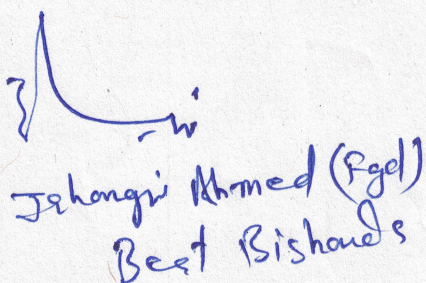 Jahangir Ahmed (Fgd)
Beat Bishands